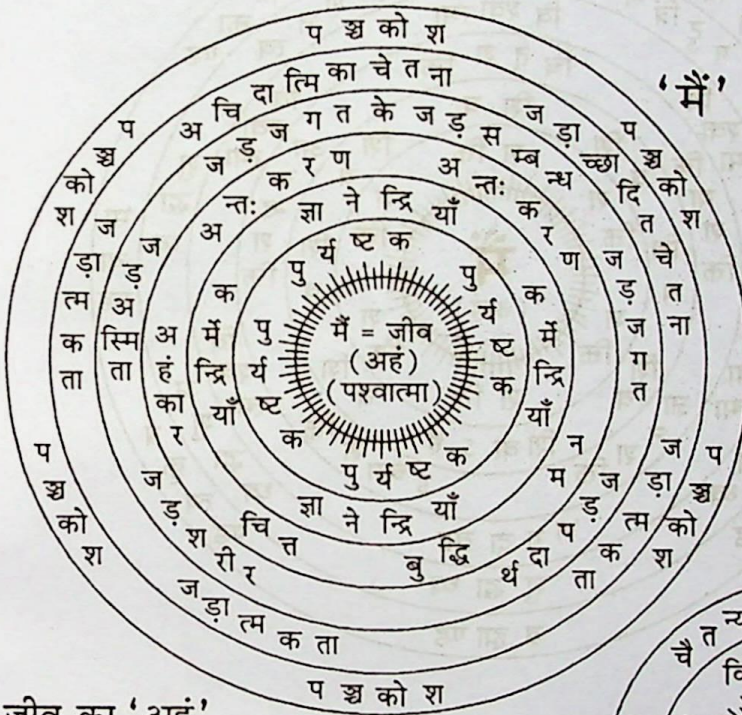 पञ्चकोश
पञ्चकोश
पञ्चकोश
पञ्चकोश
पञ्चकोश
पञ्चकोश
अचिदात्मिका चेतना
जड़ाच्छादित चेतना
जड़ात्मकता
जड़ात्मकता
जड़ात्मकता
जड़ जगत के जड़ सम्बन्ध
जड़ जगत
जड़ पदार्थ
जड़ शरीर
जड़ अस्मिता
अन्तःकरण
अन्तःकरण
मन
बुद्धि
चित्त
अहंकार
ज्ञानेन्द्रियाँ
कर्मेन्द्रियाँ
ज्ञानेन्द्रियाँ
कर्मेन्द्रियाँ
पुर्यष्टक
पुर्यष्टक
पुर्यष्टक
पुर्यष्टक
मैं = जीव
(अहं)
(पश्वात्मा)
'मैं'
जीव का 'अहं'
चैतन्य